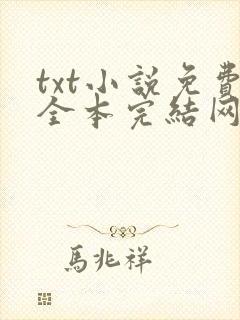 txt小説免費
全本完結网
馬兆祥